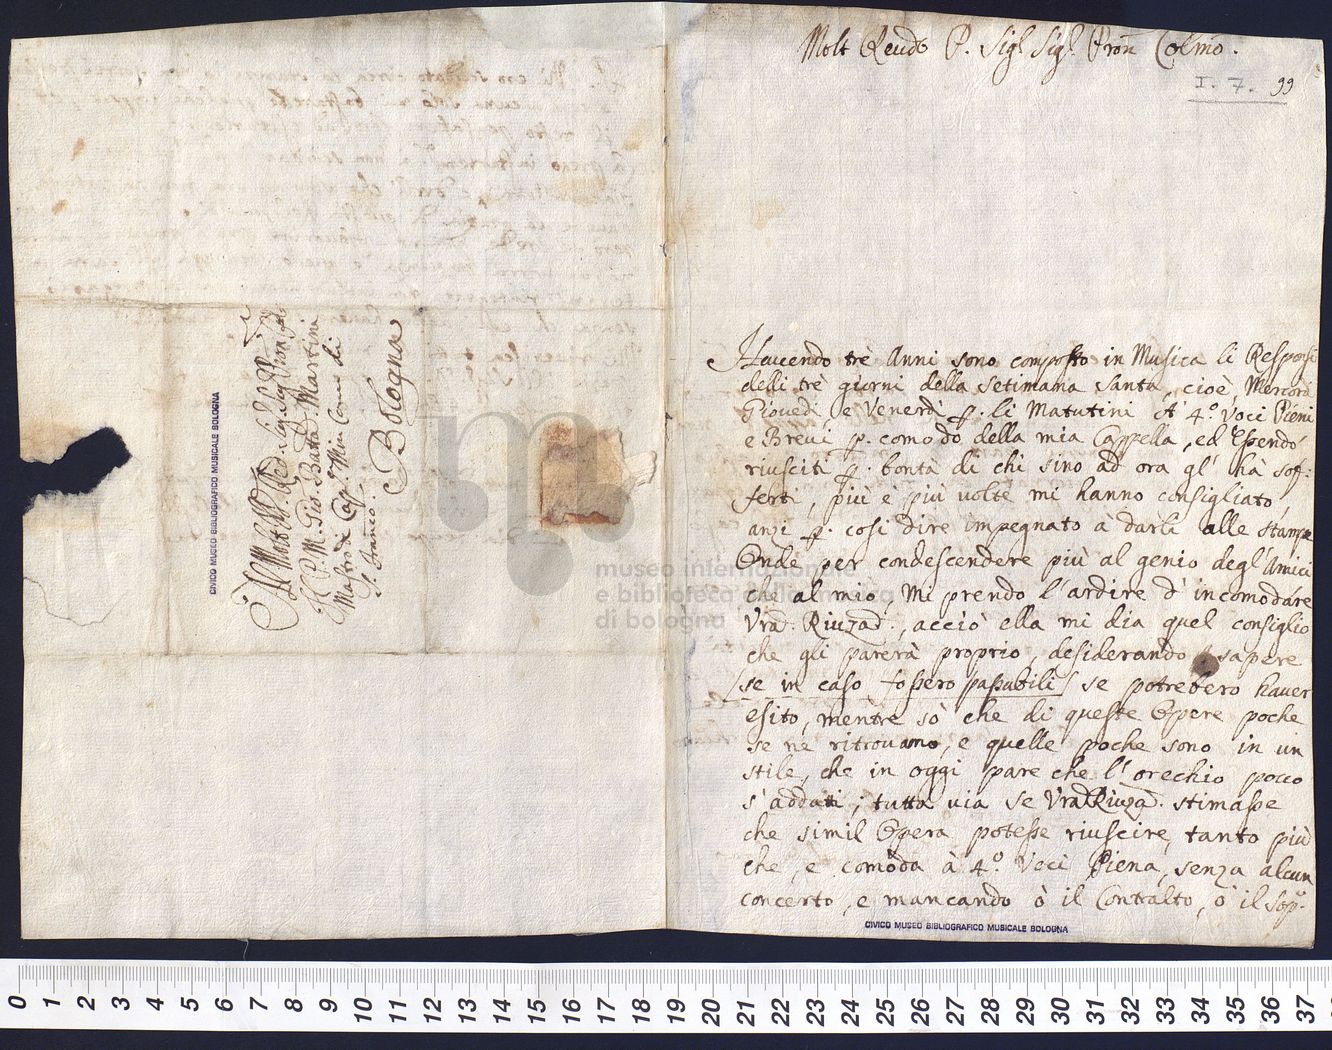 Molt Reudo P. Sigr Sigr Pron Colmo.
I. 7. 99
Hauendo trè Anni sono composto in Musica li Responsi
delli trè giorni della Setimana Santa, cioè, Mercordi
Giouedì e Venerdì p. li Matutini A' 4.º Voci Pieni
e Breui p. comodo della mia Cappella, ed essendo
riusciti p. bontà di chi sino ad ora gl' hà sof:
ferti, più e più uolte mi hanno consigliato
anzi p. cosi dire impegnato à darli alle stampe
Onde per condescendere più al genio degl'Amici
che al mio, Mi prendo l'ardire d'incomodare
Vra. Riuza., acciò ella mi dia quel consiglio
che gli parerà proprio, desiderando sapere
/se in caso fossero passabili/ se potrebero hauer
esito, mentre sò che di queste Opere poche
se ne ritrouamo, e quelle poche sono in un
stile, che in oggi pare che l'orechio poco
s'addatti; tutta uia se Vra Riuza. stimasse
che simil Opera potesse riuscire, tanto più
che, e comoda à 4.º Voci Piena, senza alcun
concerto, e mancando ò il Contralto, ò il Sop.º
Al Molt Red.
Il P. M. Gio: Batta. Martini
Mastro di Capa. Min: Conue: di
S. Franco:
Bologna
CIVICO MUSEO BIBLIOGRAFICO MUSICALE BOLOGNA
CIVICO MUSEO BIBLIOGRAFICO MUSICALE BOLOGNA
museo internazionale
e biblioteca della musica
di bologna
0 1 2 3 4 5 6 7 8 9 10 11 12 13 14 15 16 17 18 19 20 21 22 23 24 25 26 27 28 29 30 31 32 33 34 35 36 37